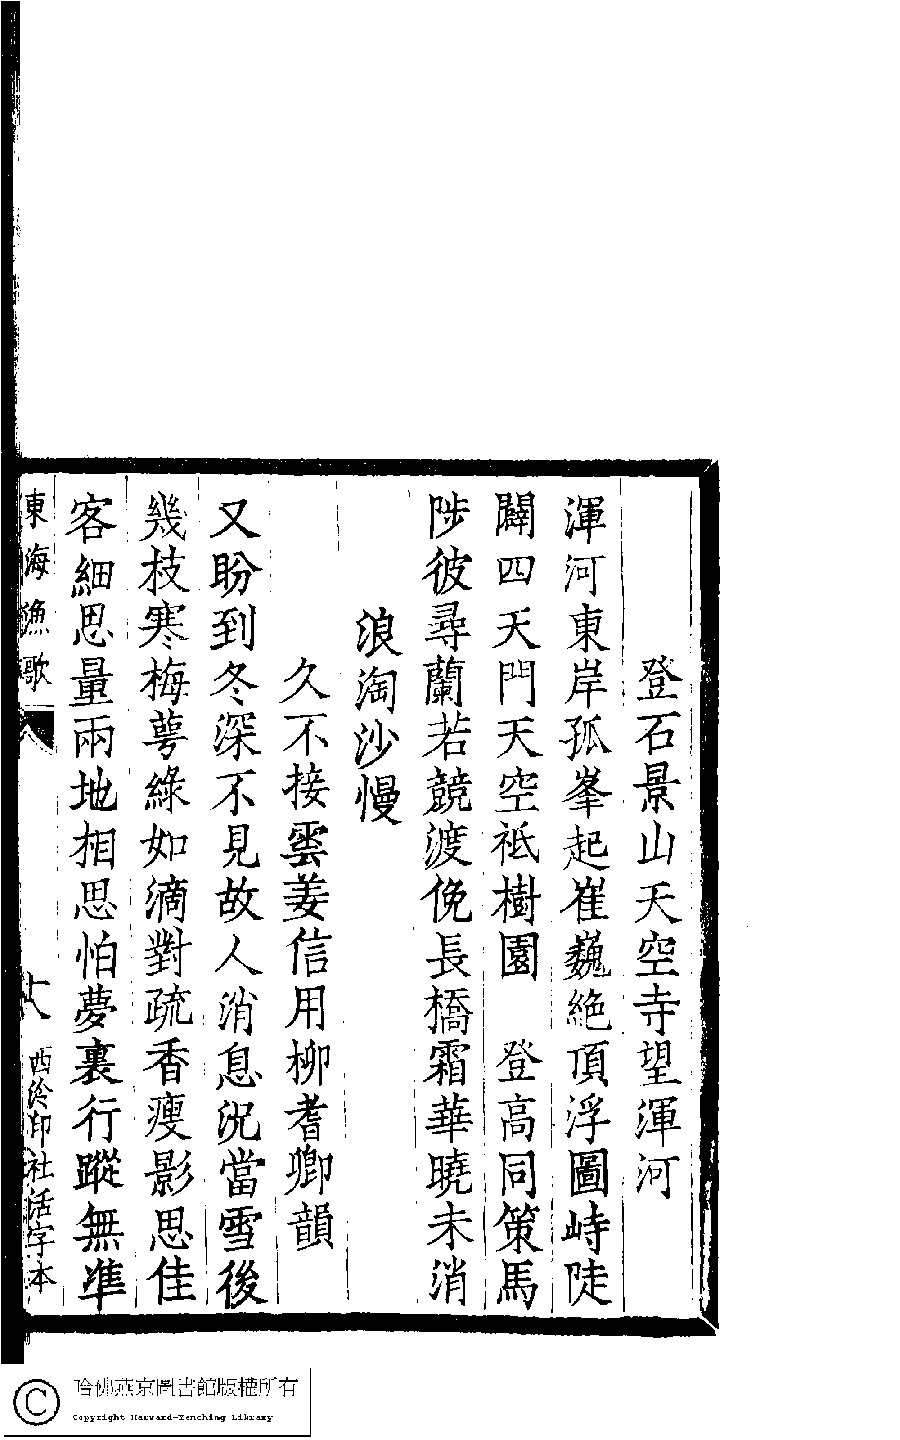 登石景山天空寺望渾河
渾河東岸孤峯起崔巍絕頂浮圖峙陡
闢四天門天空祗樹園　登高同策馬
陟彼尋蘭若競渡俛長橋霜華曉未消
浪淘沙慢
久不接雲姜信用柳耆卿韻
又盼到冬深不見故人消息況當雪後
幾枝寒梅萼綠如滴對疏香瘦影思佳
客細思量兩地相思怕夢裏行蹤無準
東海漁歌
西泠印社活字本
哈佛燕京圖書館版權所有
Copyright Harvard-Yenching Library